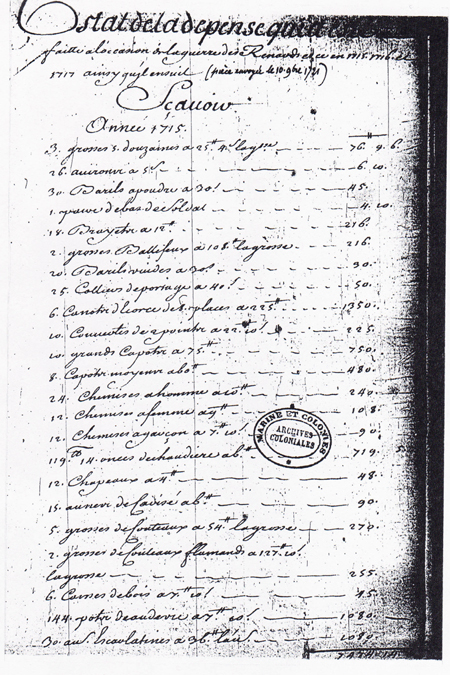 Estat de la depense qui a
faitte a loccasion de la guerre des Renards en 1715. 1716. et
1717 ainsy quil ensuit (
Sçavoir
Année 1715.
3. grosses 3. douzaines a 25# 4s la gse 76. 9. 6.
26. avirons a 5s 6. 10.
30. Barils a poudre a 30s 45.
1. paire de bas de Soldat 4. 10.
18. Brayets a 12# 216.
2. grosses Battefeux a 108# la grosse 216.
20. Barils vuides a 30s 30.
25. Colliers de portage a 40s 50.
6. Canots d'écorce de 8. places a 225# 1350.
10. Couvertes de 2 points a 22# 10s 225.
10. grands Capots a 75# 750.
8. Capots moyens a 60# 480.
24. Chemises a homme a 10# 240.
12. Chemises a femme a 9# 108.
12. Chemises a garçon a 7# 10s 90.
119# 14. onces de chaudiere a 6# 719. 5
12. Chapeaux a 4# 48.
15. aunes de Cadisé a 6# 90.
5. grosses de Couteaux a 54# la grosse 270.
2. grosses de Couteaux flamands a 127# 10s
la grosse 255.
6. Cornes de bois a 7# 10s 45.
144. pots d'eau de vie a 7# 10s 1080.
30 aus. Escarlatines a 36# l'aus. 1080.
MARINE ET COLONIES
ARCHIVES
COLONIALES